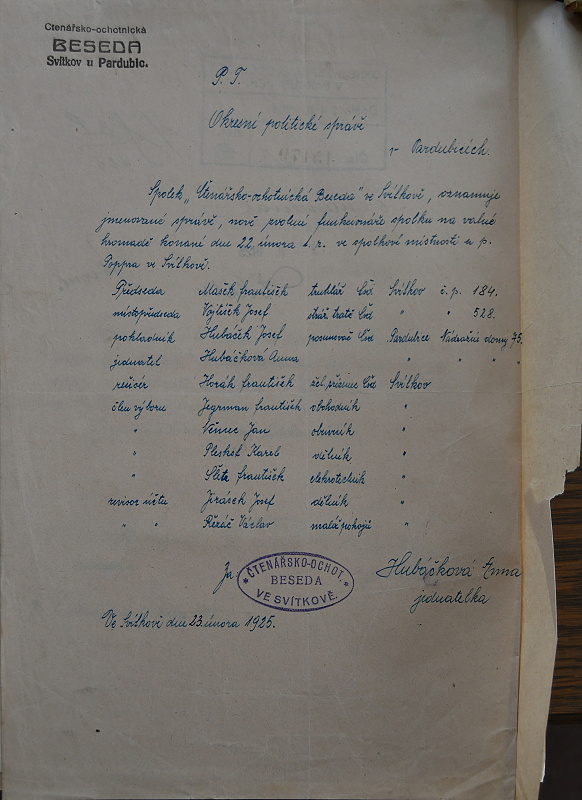 Čtenářsko-ochotnická
BESEDA
Svítkov u Pardubic.
P. T.
Okresní politické správě
v Pardubicích.
Spolek „Čtenářsko-ochotnická Beseda" ve Svítkově, oznamuje
jmenované správě, nově zvolené funkcionáře spolku na valné
hromadě konané dne 22. února t. r. ve spolkové místnosti u p.
Poppra ve Svítkově.
Předseda Mašek František truhlář Čsd Svítkov č. p. 184.
místopředseda Vojtíšek Josef stráž. tratě Čsd " " 528.
pokladník Hubáček Josef posunovač Čsd Pardubice Nádražní domy 75.
jednatel Hubáčková Anna " " "
režisér Horák František žel. Čsd Svítkov
člen výboru Jegrman František obchodník "
" Němec Jan obuvník "
" Pleskot Karel dělník "
" František elektrotechnik "
revisor účtů Jirásek Josef dělník "
" " Řezáč Václav malíř pokojů "
Za:
ČTENÁŘSKO-OCHOT.
BESEDA
VE SVÍTKOVĚ.
Hubáčková Anna
jednatelka
Ve Svítkově dne 23. února 1925.